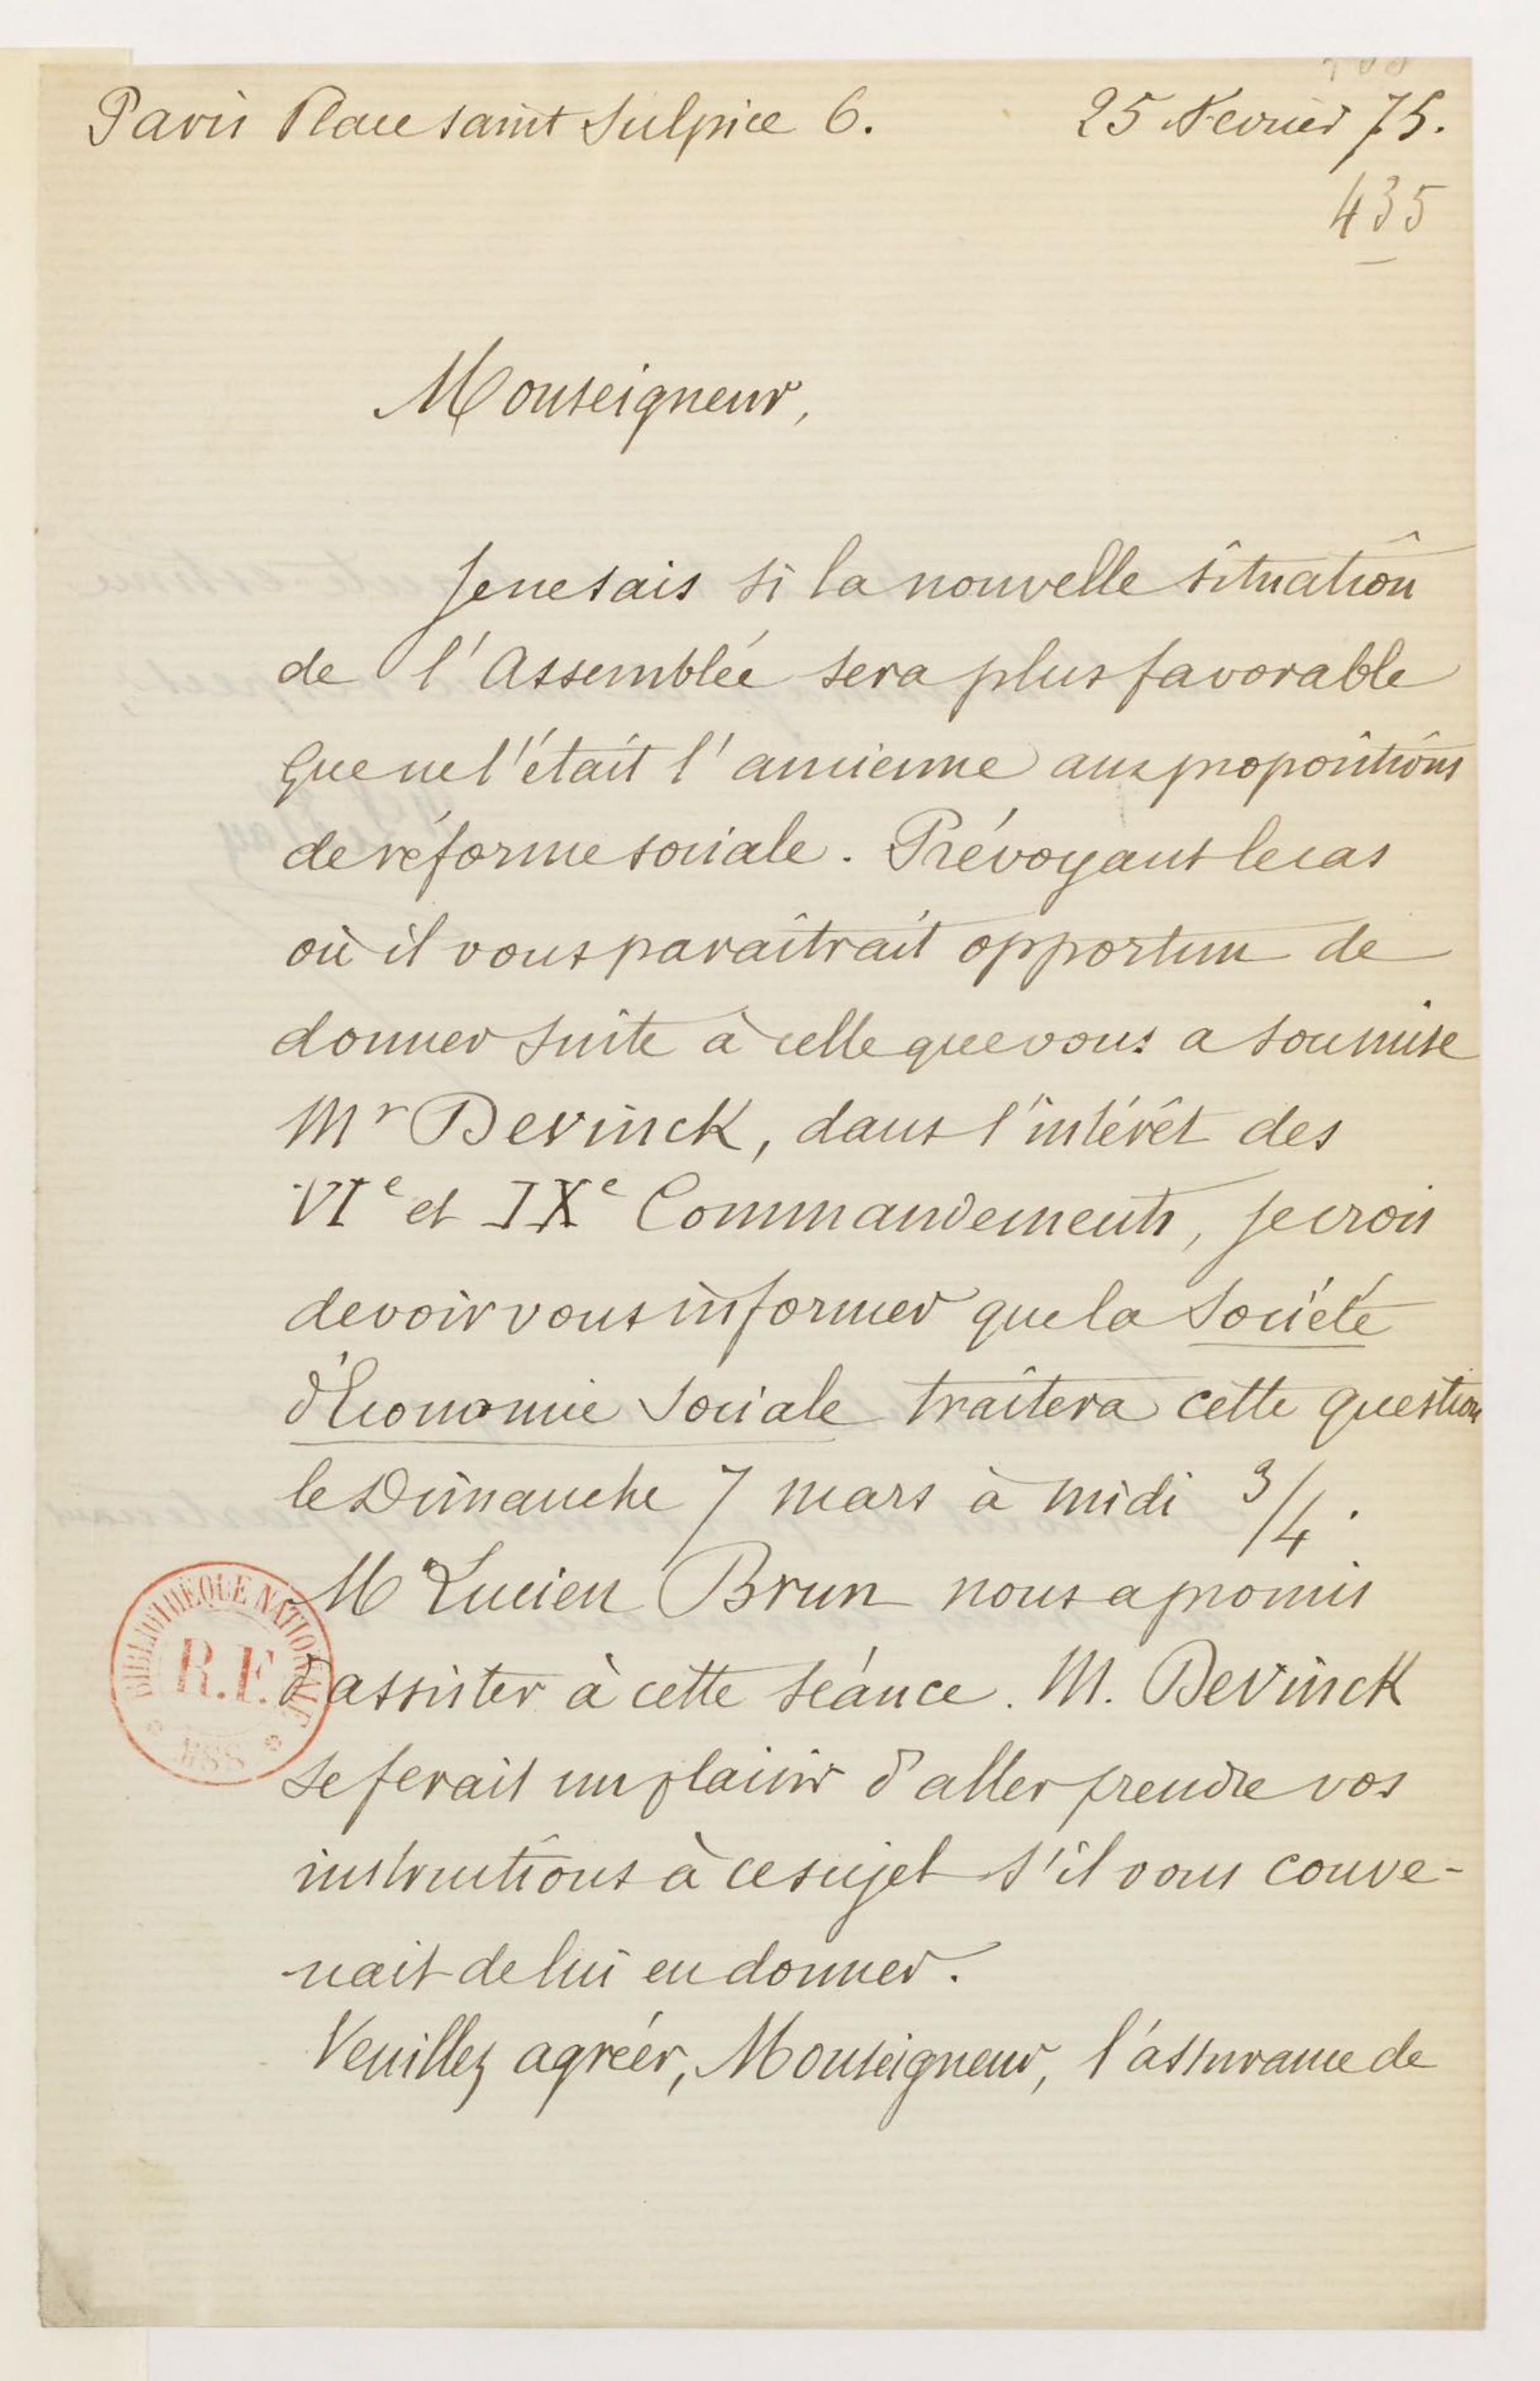 Paris Place saint Sulpice 6. 25 Fevrier 75.
435
Monseigneur,
Je ne sais si la nouvelle situation
de l'Assemblée sera plus favorable
que ne l'était l'ancienne aux propositions
de réforme sociale. Prévoyant le cas
où il vous paraîtrait opportun de
donner suite à celle que vous a soumise
Mr Devinck, dans l'intérêt des
VIe et IXe Commandements, je crois
devoir vous informer que la Société
d'Économie Sociale traitera cette question
le Dimanche 7 mars à midi 3/4.
M Lucien Brun nous a promis
d'assister à cette séance. M. Devinck
se ferait un plaisir d'aller prendre vos
instructions à ce sujet s'il vous conve-
nait de lui en donner.
Veuillez agréer, Monseigneur, l'assurance de
BIBLIOTHEQUE NATIONALE
R.F.
MSS